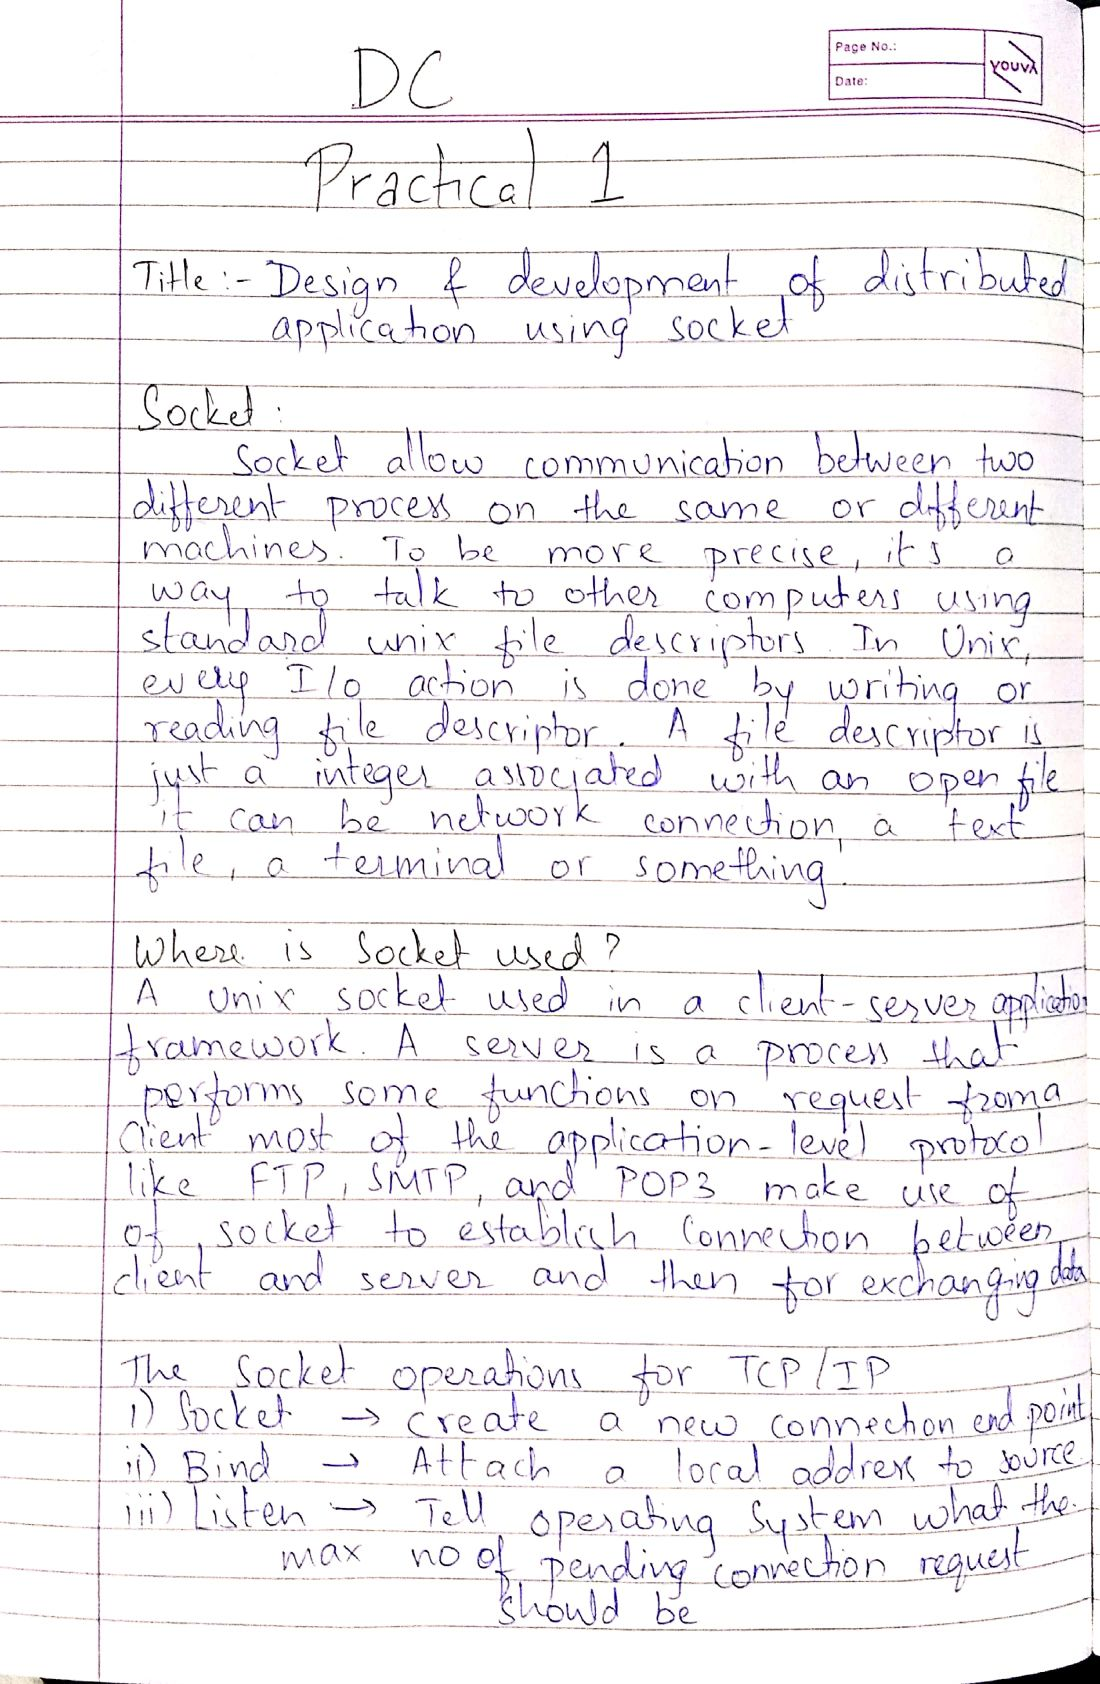 DC
Page No.:
Date:
YOUVA
Practical 1
Title :- Design & development of distributed
application using socket
Socket :
Socket allow communication between two
different process on the same or different
machines. To be more precise, it's a
way to talk to other computers using
standard unix file descriptors. In Unix,
every I/o action is done by writing or
reading file descriptor. A file descriptor is
just a integer associated with an open file
it can be network connection, a text
file, a terminal or something.
Where is Socket used?
A Unix socket used in a client-server application
framework. A server is a process that
performs some functions on request from a
Client most of the application-level protocol
like FTP, SMTP, and POP3 make use of
of socket to establish Connection between
client and server and then for exchanging data
The Socket operations for TCP/IP
i) Socket → create a new connection end point
ii) Bind → Attach a local address to source
iii) Listen → Tell operating System what the
max no of pending connection request
should be